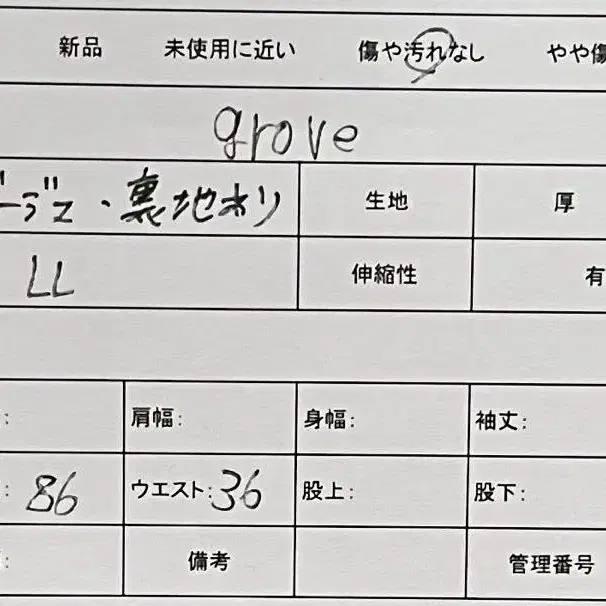 新品 未使用に近い 傷や汚れなし やや傷
grove
ージュ・裏地あり 生地 厚
LL 伸縮性 有
: 肩幅: 身幅: 袖丈:
: 86 ウエスト: 36 股上: 股下:
: 備考 管理番号